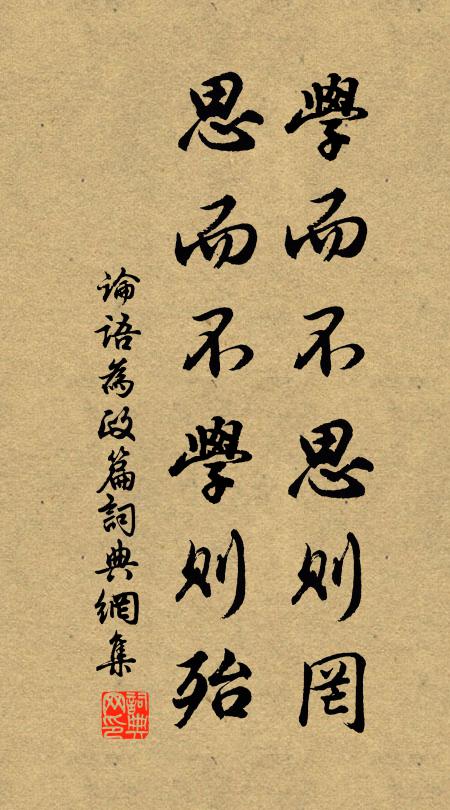 學而不思則罔
思而不學則殆
論語為政篇詞典網集
詞典網印